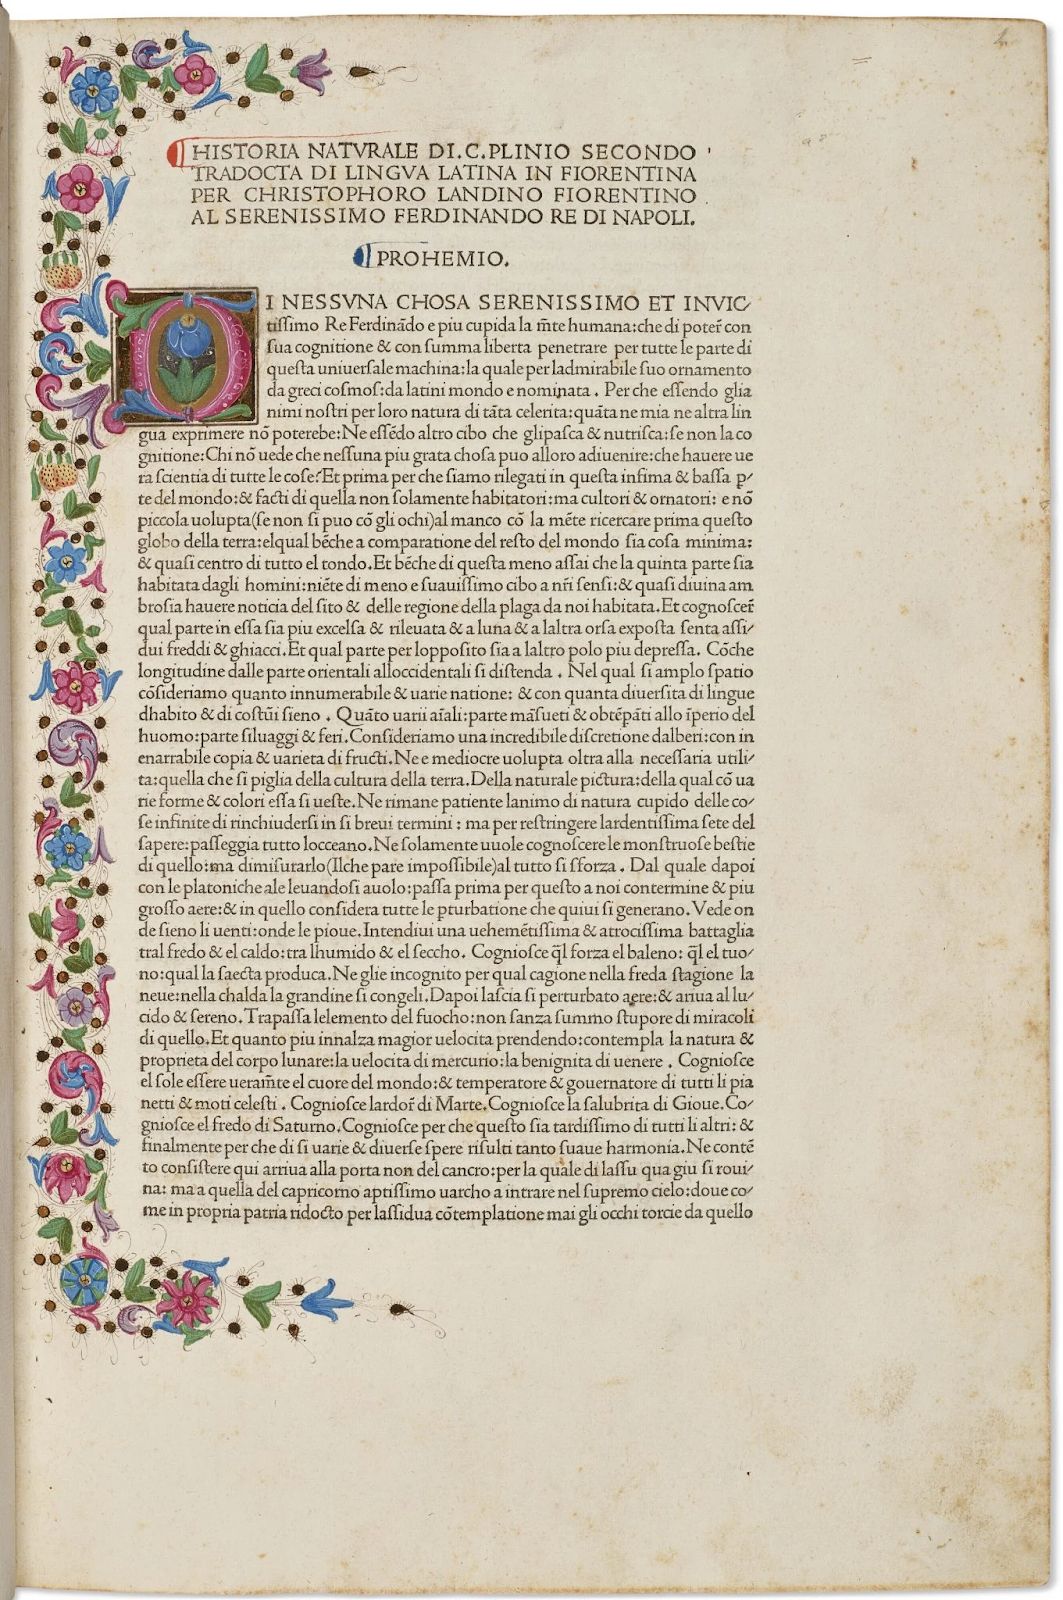 HISTORIA NATVRALE DI.C.PLINIO SECONDO
TRADOCTA DI LINGVA LATINA IN FIORENTINA
PER CHRISTOPHORO LANDINO FIORENTINO
AL SERENISSIMO FERDINANDO RE DI NAPOLI.
PROHEMIO.
DI NESSVNA CHOSA SERENISSIMO ET INVIC⸗
tissimo Re Ferdinãdo e piu cupida la mẽte humana:che di poter̃ con
sua cognitione & con summa liberta penetrare per tutte le parte di
questa uniuersale machina:la quale per ladmirabile suo ornamento
da greci cosmos:da latini mondo e nominata . Per che essendo glia
nimi nostri per loro natura di tãta celerita:quãta ne mia ne altra lin
gua exprimere nõ poterebe:Ne essẽdo altro cibo che glipasca & nutrisca:se non la co
gnitione:Chi nõ uede che nessuna piu grata chosa puo alloro adiuenire:che hauere ue
ra scientia di tutte le cose?Et prima per che siamo rilegati in questa infima & bassa p⸗
te del mondo:& facti di quella non solamente habitatori:ma cultori & ornatori: e nõ
piccola uolupta(se non si puo cõ gli ochi)al manco cõ la mẽte ricercare prima questo
globo della terra:elqual bẽche a comparatione del resto del mondo sia cosa minima:
& quasi centro di tutto el tondo.Et bẽche di questa meno assai che la quinta parte sia
habitata dagli homini:niẽte di meno e suauissimo cibo a nr̃i sensi:& quasi diuina am
brosia hauere noticia del sito & delle regione della plaga da noi habitata.Et cognoscer̃
qual parte in essa sia piu excelsa & rileuata & a luna & a laltra orsa exposta senta assi⸗
dui freddi & ghiacci.Et qual parte per lopposito sia a laltro polo piu depressa. Cõche
longitudine dalle parte orientali alloccidentali si distenda . Nel qual si amplo spatio
cõsideriamo quanto innumerabile & uarie natione: & con quanta diuersita di lingue
dhabito & di costũi sieno . Quãto uarii aĩali:parte mãsueti & obtẽpãti allo ĩperio del
huomo:parte siluaggi & feri.Consideriamo una incredibile discretione dalberi:con in
enarrabile copia & uarieta di fructi.Ne e mediocre uolupta oltra alla necessaria utili⸗
ta:quella che si piglia della cultura della terra.Della naturale pictura:della qual cõ ua
rie forme & colori essa si ueste.Ne rimane patiente lanimo di natura cupido delle co⸗
se infinite di rinchiudersi in si breui termini : ma per restringere lardentissima sete del
sapere:passeggia tutto locceano.Ne solamente uuole cognoscere le monstruose bestie
di quello:ma dimisurarlo(Ilche pare impossibile)al tutto si sforza . Dal quale dapoi
con le platoniche ale leuandosi auolo:passa prima per questo a noi contermine & piu
grosso aere:& in quello considera tutte le pturbatione che quiui si generano.Vede on
de sieno li uenti:onde le pioue.Intendiui una uehemẽtissima & atrocissima battaglia
tral fredo & el caldo:tra lhumido & el seccho. Cogniosce q̃l forza el baleno: q̃l el tuo⸗
no:qual la saecta produca.Ne glie incognito per qual cagione nella freda stagione la
neue:nella chalda la grandine si congeli.Dapoi lascia si perturbato aere:& ariua al lu⸗
cido & sereno.Trapassa lelemento del fuocho:non sanza summo stupore di miracoli
di quello.Et quanto piu innalza magior uelocita prendendo:contempla la natura &
proprieta del corpo lunare:la uelocita di mercurio:la benignita di uenere . Cogniosce
el sole essere ueram̃te el cuore del mondo:& temperatore & gouernatore di tutti li pia
netti & moti celesti . Cogniosce lardor̃ di Marte.Cogniosce la salubrita di Gioue.Co⸗
gniosce el fredo di Saturno.Cogniosce per che questo sia tardissimo di tutti li altri: &
finalmente per che di si uarie & diuerse spere risulti tanto suaue harmonia.Ne contẽ
to consistere qui arriua alla porta non del cancro:per la quale di lassu qua giu si roui⸗
na: ma a quella del capricorno aptissimo uarcho a intrare nel supremo cielo:doue co⸗
me in propria patria ridocto per lassidua cõtemplatione mai gli occhi torcie da quello